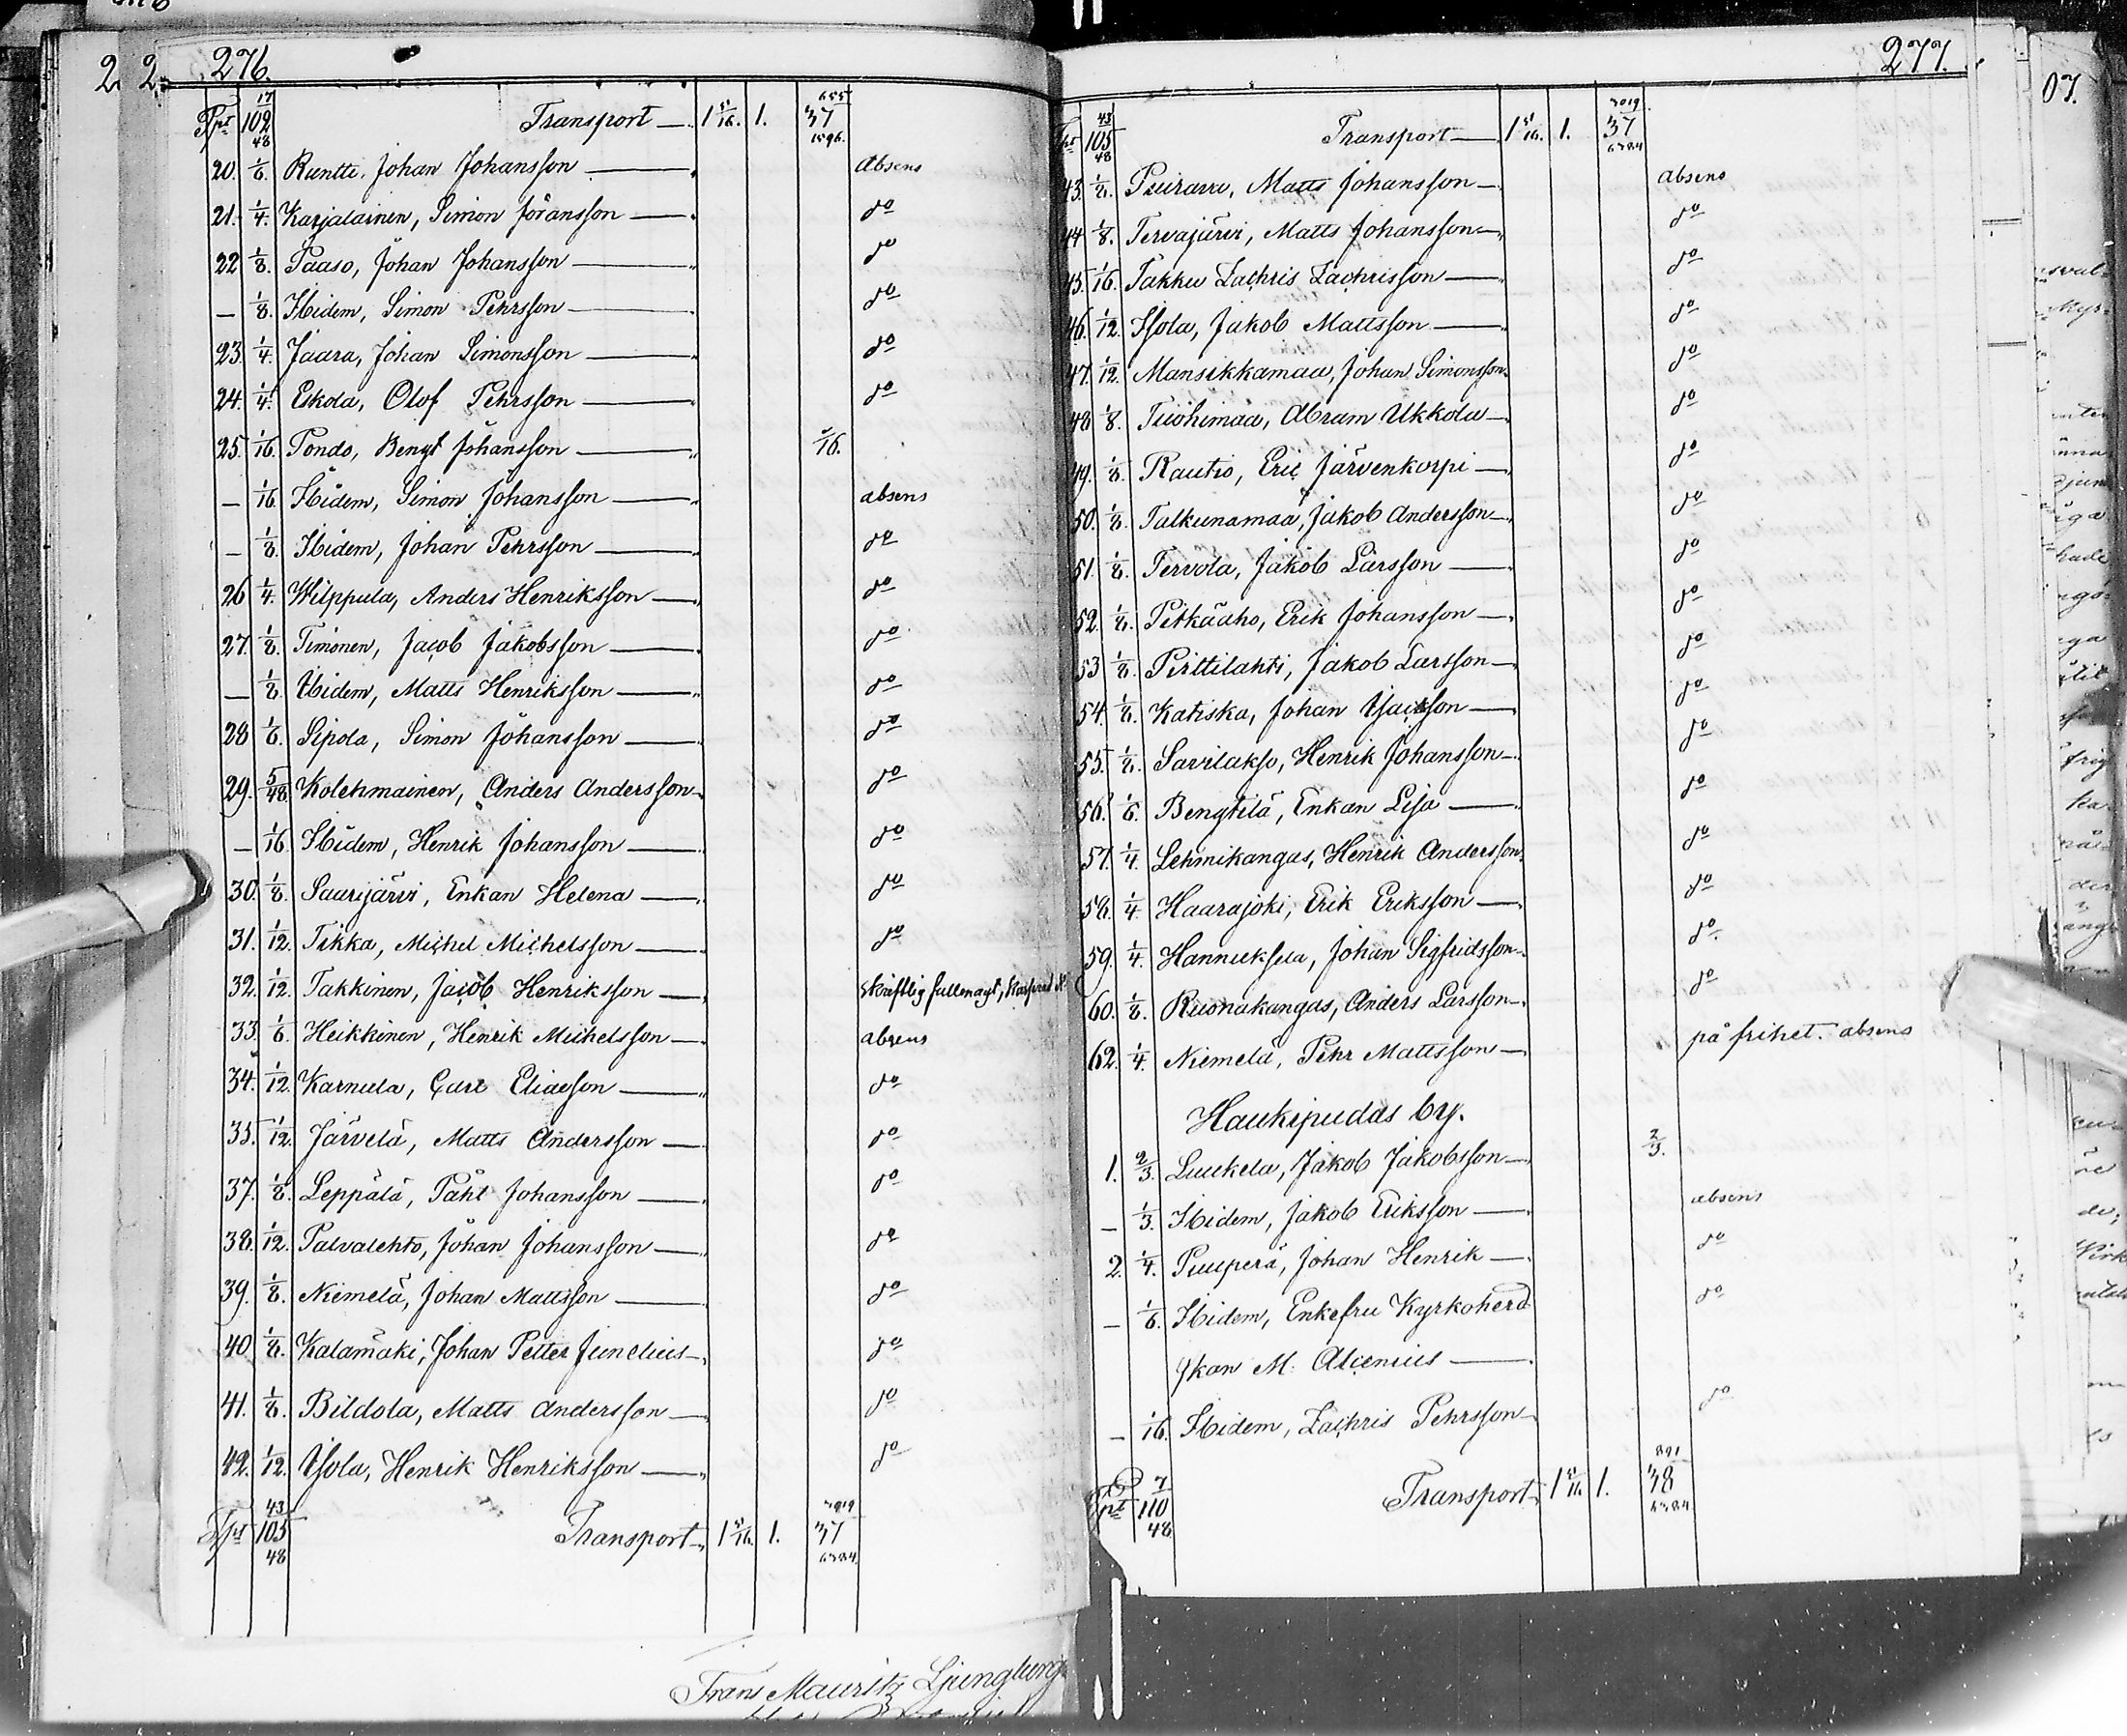 276.
Tpt 102 17/48 Transport — 1 5/16. 1. 37 655/1596.
20. 1/6. Runtti, Johan Johansson — absens
21. 1/4. Karjalainen, Simon Jöransson — do
22 1/8. Paaso, Johan Johansson — do
— 1/8. Ibidem, Simon Pehrsson — do
23. 1/4. Jaara, Johan Simonsson — do
24. 1/4. Eskola, Olof Pehrsson — do
25. 1/16. Tondo, Bengt Johansson — 1/16.
— 1/16. Ibidem, Simon Johansson — absens
— 1/8. Ibidem, Johan Pehrsson — do
26 1/4. Wilppula, Anders Henriksson — do
27. 1/8. Timonen, Jacob Jakobsson — do
— 1/8. Ibidem, Matts Henriksson — do
28 1/6. Sipola, Simon Johansson — do
29. 5/48 Kolehmainen, Anders Andersson — do
— 1/16. Ibidem, Henrik Johansson — do
30. 1/8. Saarijärvi, Enkan Helena — do
31. 1/12. Tikka, Michel Michelsson — do
32. 1/12. Takkinen, Jacob Henriksson — skriftlig fullmagt,
33. 1/6. Heikkinen, Henrik Michelsson — absens
34. 1/12. Karnula, Carl Eliasson — do
35. 1/12. Järvelä, Matts Andersson — do
37. 1/8. Leppälä, Påhl Johansson — do
38. 1/12. Palvalehto, Johan Johansson — do
39. 1/8. Niemelä, Johan Mattsson — do
40 1/8. Kalamäki, Johan Petter Junelius — do
41. 1/8. Bildola, Matts Andersson — do
42. 1/12. Isola, Henrik Henriksson — do
Tpt 105 43/48 Transport — 1 5/16. 1. 37
Frans Mauritz Ljunglung
277.
Tpt 105 43/48 Transport — 1 5/16. 1. 37
43. 1/8. Psuirawa, Matts Johansson — absens
44 1/8. Tervajärvi, Matts Johansson — do
45. 1/16. Takku Zachris Zachrisson — do
46. 1/12. Isola, Jakob Mattsson — do
47. 1/12. Mansikkamaa, Johan Simonsson — do
48 1/8. Tuohimaa, Abram Ukkola — do
49. 1/8. Rautio, Eric Järvenkorpi — do
50. 1/8. Talkunamaa, Jakob Andersson — do
51. 1/8. Tervola, Jakob Larsson — do
52. 1/8. Pitkäaho, Erik Johansson — do
53 1/8. Pirttilahti, Jakob Larsson — do
54. 1/8. Katiska, Johan Isaksson — do
55. 1/8. Savilakso, Henrik Johansson — do
56. 1/6. Bengtilä, Enkan Lisa — do
57. 1/4. Lehmikangas, Henrik Andersson — do
58. 1/4. Haarajoki, Erik Eriksson — do
59. 1/4. Hannuksela, Johan Sigfridsson — do.
60. 1/8. Ruonakangas, Anders Larsson — do
62. 1/4. Niemelä, Pehr Mattsson — på frihet. absens
Haukipudas by.
1. 2/3. Luukela, Jakob Jakobsson — 2/3.
— 1/3. Ibidem, Jakob Eriksson — absens
2. 1/4. Puuperä, Johan Henrik — do
— 1/6. Ibidem, Enkefru Kyrkoherd
skan M. Alcenius — do
— 1/16. Ibidem, Zachris Pehrsson — do
Tpt 110 7/48 Transport — 1 5/16. 1. 38